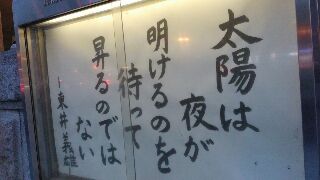 太陽は
夜が
明けるのを
待って
昇るのでは
ない
東井義雄